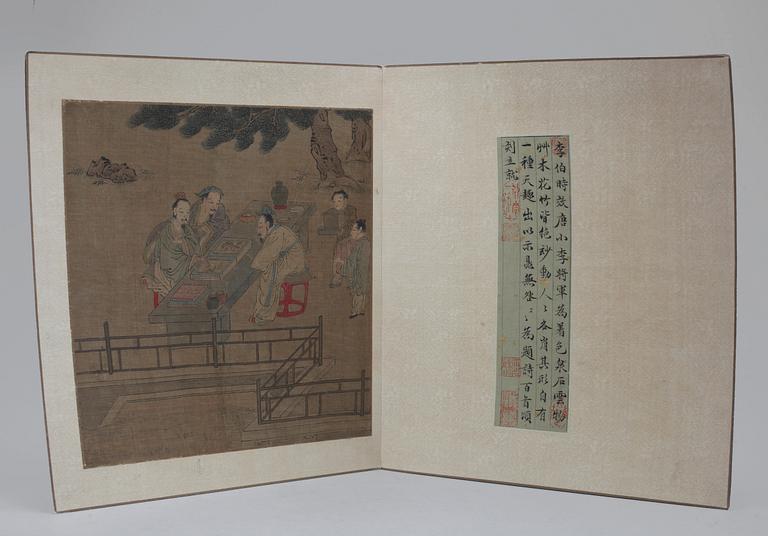 李伯時效唐小李將軍為着色泉石雲物
艸木花竹皆絕妙動人人各肖其形自有
一種天趣出以示晁無咎〻為題詩百首頃
刻立就